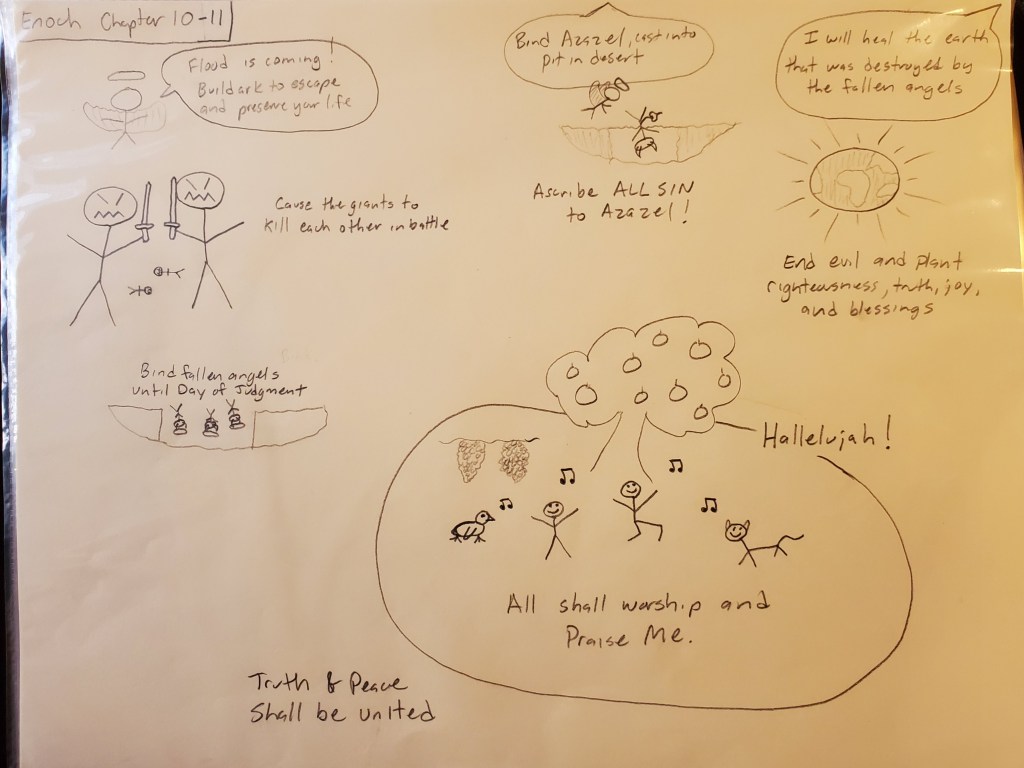 Enoch Chapter 10-11
Flood is coming!
Build ark to escape
and preserve your life
Bind Azazel, cast into
pit in desert
I will heal the earth
that was destroyed by
the fallen angels
Cause the giants to
kill each other in battle
Ascribe ALL SIN
to Azazel!
End evil and plant
righteousness, truth, joy,
and blessings
Bind fallen angels
until Day of Judgment
Hallelujah!
All shall worship and
Praise Me.
Truth & Peace
Shall be united